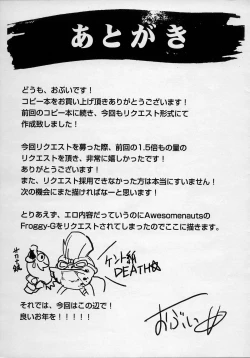 あとがき
どうも、おぶいです！
コピー本をお買い上げ頂きありがとうございます！
前回のコピー本に続き、今回もリクエスト形式にて
作成致しました！
今回リクエストを募った際、前回の1.5倍もの量の
リクエストを頂き、非常に嬉しかったです！
ありがとうございます！
また、リクエスト採用できなかった方は本当にすいません！
次の機会にまた描ければなーと思います！
とりあえず、エロ内容だっていうのにAwesomenautsの
Froggy-Gをリクエストされてしまったのでここに描きます。
ケント紙
DEATH
それでは、今回はこの辺で！
良いお年を！！！！！
おぶい